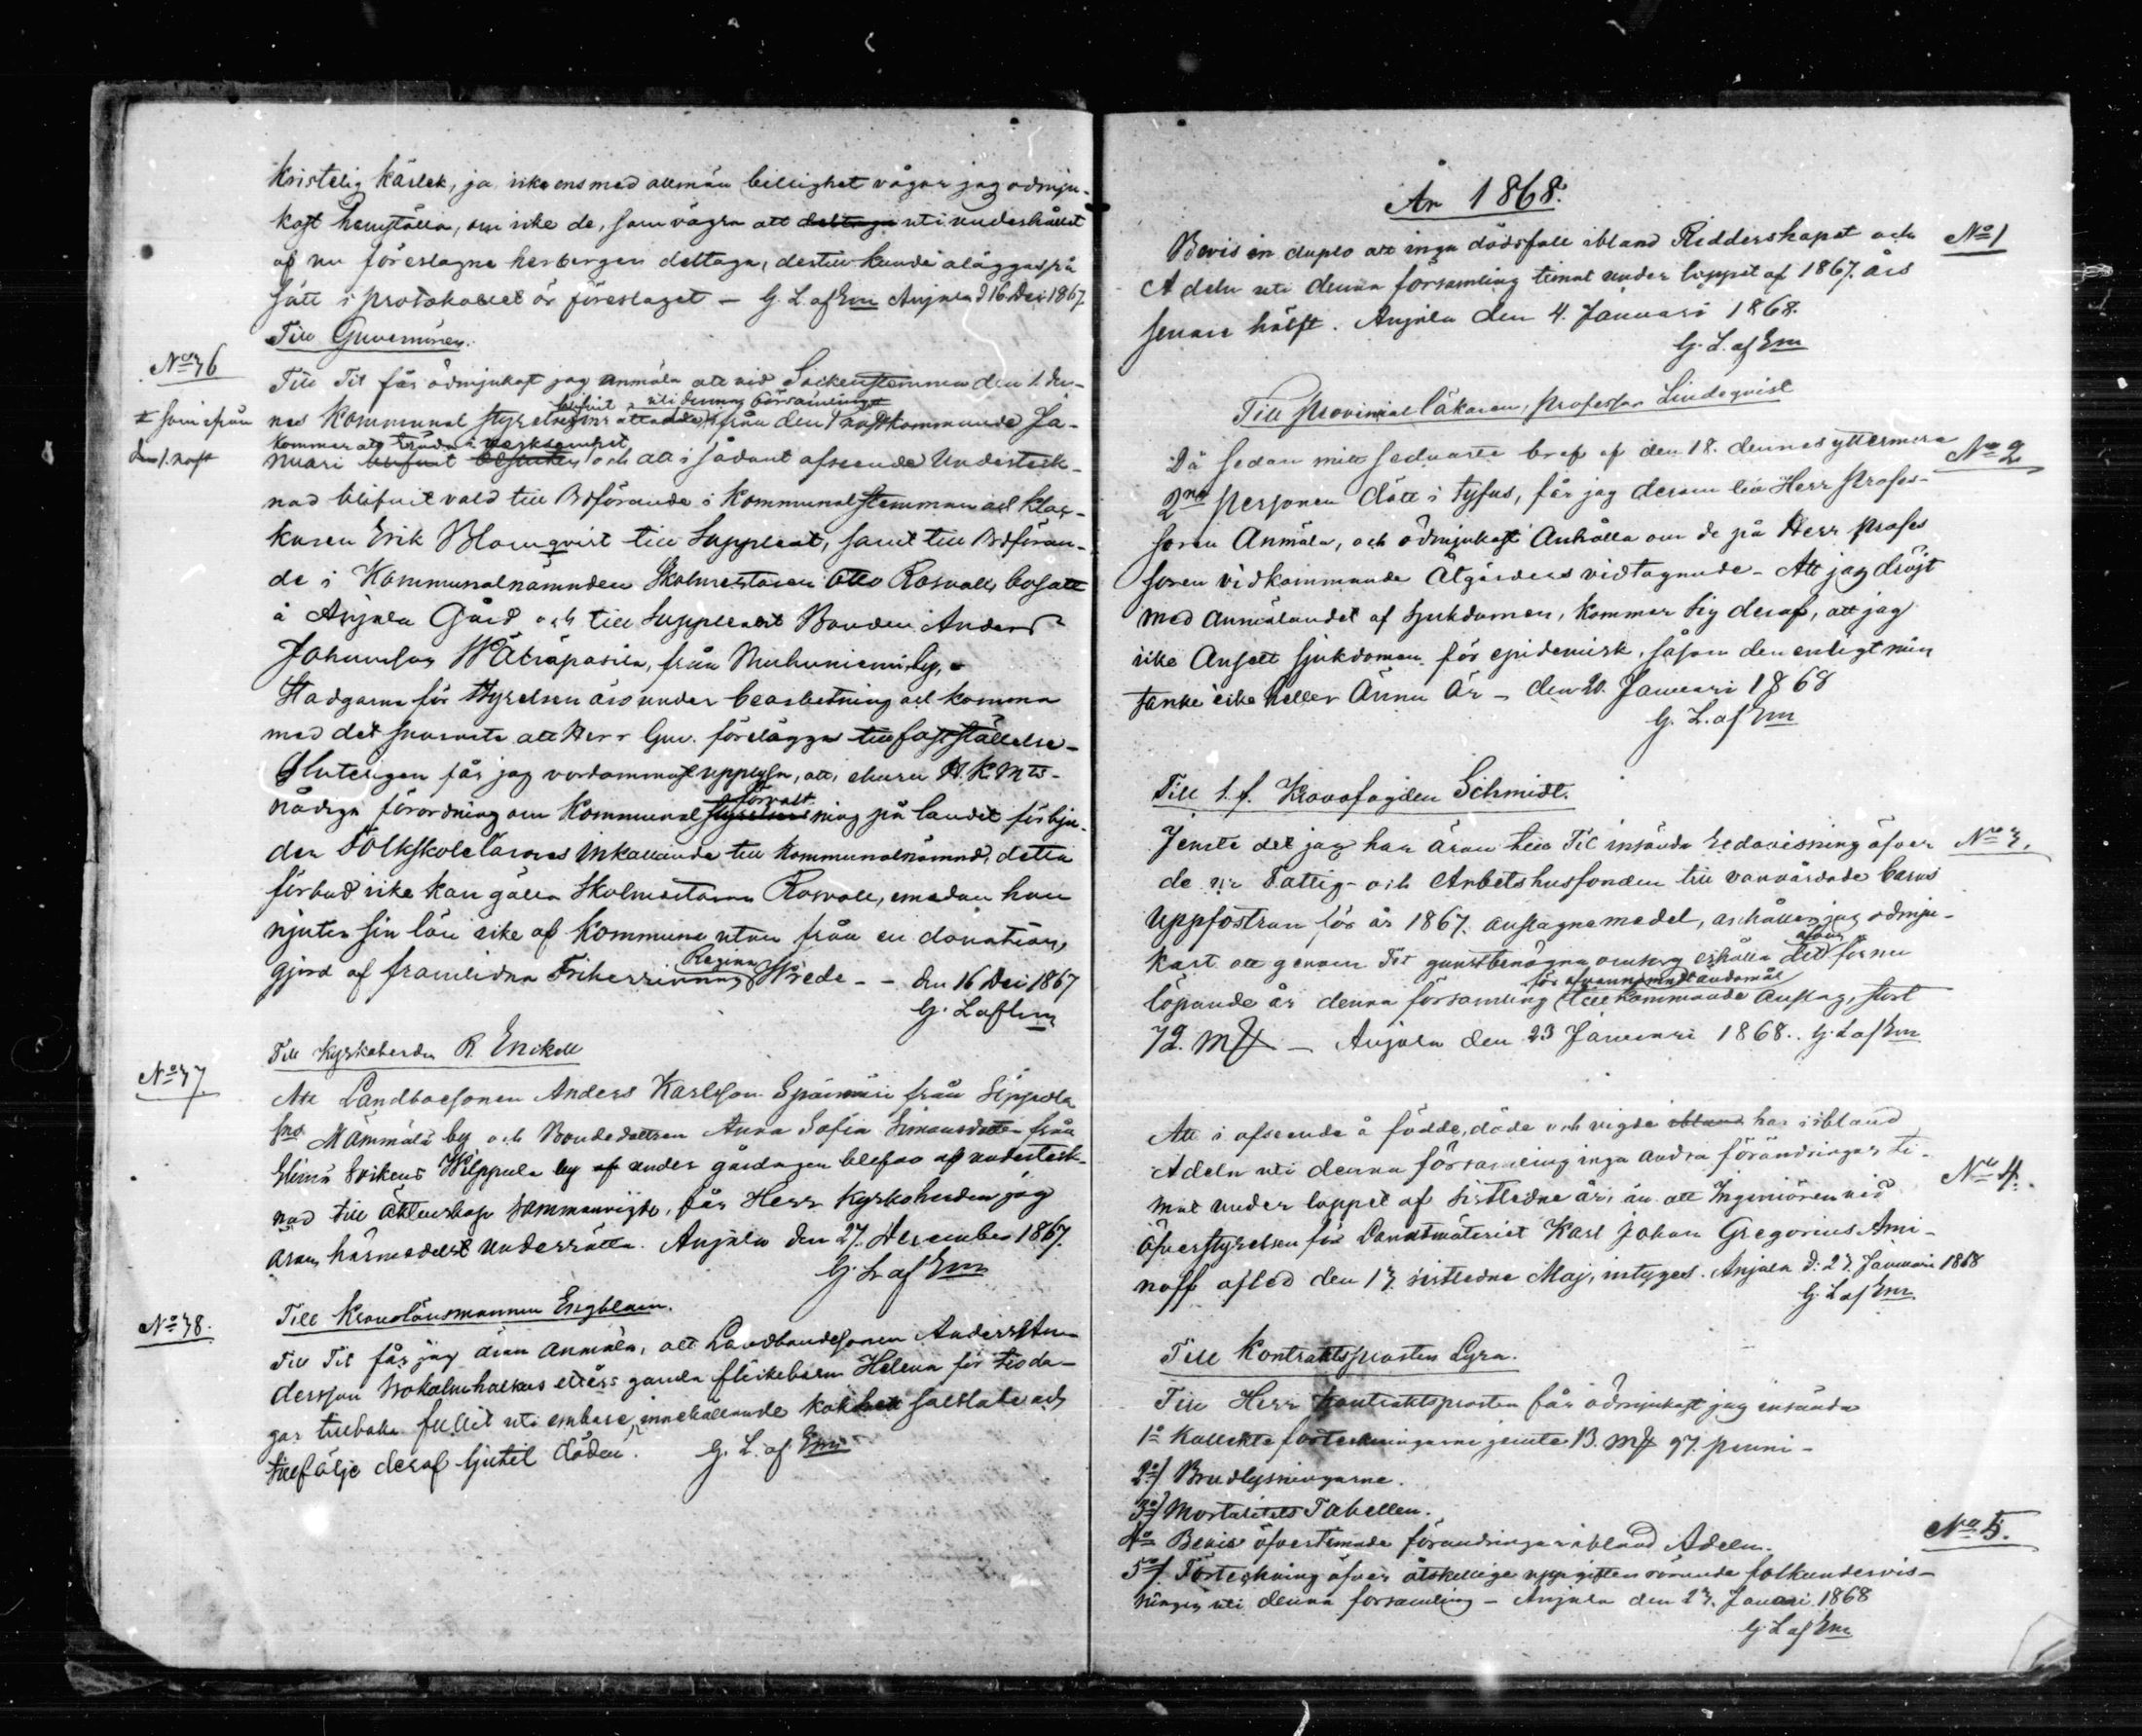 Kristelig kärlek, ja icke ens med allmän billighet vågar jag ödmju-
kast hemställa, om icke de, som vägra att deltaga uti underhållet
af nu föreslagne herbergen deltaga, dertill kunde åläggas på
sätt i protokollet är föreslaget – G. L. af Em Anjala d 16 Dec 1867.
Till Guvernören.
No 36
Till Tit får ödmjukast jag anmäla att vid Sockenstemman den 1. den-
blifvit uti denna församling
som ifrån
nes Kommunal styrelsen från den 1 nästkommande Ja-
kommer att träda i verksamhet
den 1. näst
nuari blifvit besluten och att i sådant afseende Underteck-
nad blifvit vald till Ordförande i Kommunalstemman och Kloc-
karen Erik Blomqvist till Suppleant, samt till Ordföran-
de i Kommunalnämnden Skolmestaren Otto Rosvall, bosatt
å Anjala Gård och till Suppleant Bonden Anders
Johansson från Muhuniemi by,
Stadgarna för Styrelsen äro under bearbetning och komma
med det snaraste att Herr Guv. föreläggas till fastställelse –
Slutligen får jag vördsammast upplysa, att, ehuru H. K. Mts
förvalt
nådiga förordning om Kommunal styrelsens ning på landet förbju-
der Folkskolelärares inkallande till Kommunalnämnd, detta
förbud icke kan gälla Skolmestaren Rosvall, emedan han
njuter sin lön icke af Kommunen utan från en donation,
Regina
gjord af framlidna Friherrinnan Wrede – – den 16 Dec 1867
G. L af Em
Till Kyrkoherden R. Enckell
No 37
Att Landbosonen Anders Karlsson från Sippola
Sn Mämmälä by och Bondedottren Anna Sofia Simonsdotter från
Elimä Sockens Wilppula by af under gårdagen blefvo af underteck-
nad till äktenskap sammanvigde, får Herr Kyrkoherden jag
äran härmedelst underrätta. Anjala den 27. December 1867.
G. L. af Em
Till Kronolänsmannen Engblom.
No 38.
Till Tit får jag äran anmäla, att Landbondesonen Anders An-
dersson ettårs gamla flickebarn Helena för tio da-
gar tillbaka fallit uti embare, innehållande kokhett saltlake och
tillfölje deraf ljutit döden. G. L. af Em
År 1868.
Bevis in duplo att inga dödsfall ibland Ridderskapet och
No 1
Adeln uti denna församling timat under loppet af 1867. års
senare hälft. Anjala den 4. Januari 1868.
G. L. af Em
Till Provincialläkaren, Professor Lindeqvist
Då sedan mitt sednaste bref af den 18. dennes yttermera
No 2
2ne personer dött i tyfus, får jag derom till Herr Profes-
soren Anmäla, och ödmjukast Anhålla om de på Herr Profes
soren vidkommande Åtgärders vidtagande – Att jag dröjt
med anmälandet af sjukdomen, kommer sig deraf, att jag
icke Ansett sjukdomen för epidemisk, såsom den enligt min
tanke icke heller Ännu Är – den 20. Januari 1868
G. L. af Em
Till t. f. Kronofogden Schmidt.
Jemte det jag har äran till Tit insända Redovisning öfver
No 3.
de ur Fattig- och Arbetshusfonden till vanvårdade barns
uppfostran för år 1867. anslagna medel, anhåller jag ödmju-
kast att genom Tit gunstbenägna omsorg erhålla det för nu
för ofvannämndt ändamål
löpande år denna församling tillkommande anslag, stort
72. M – Anjala den 23 Januari 1868. G. L af Em
Att i afseende å födde, döde och vigde ibland har i ibland
Adeln uti denna församling inga andra förändringar ti-
No 4.
mat under loppet af sistledne år, än att Ingeniören vid
Öfverstyrelsen för Landtmäteriet Karl Johan Gregorius Ami-
noff afled den 13 sistledne Maj, intygas. Anjala d: 23. Januari 1868
G. L af Em
Till Kontraktsprosten Lyra.
Till Herr Kontraktsprosten får ödmjukast jag insända
1o Kollektförteckningarne jemte 13. M 97. penni –
2o/ Brudlysningarne.
3o/ Mortalitets Tabellen.
4o Bevis öfver timade förändringar ibland Adeln.
No 5.
5o/. Förteckning öfver åtskillige uppgifter rörande folkundervis-
ningen uti denna församling – Anjala den 23. Januari 1868
G. L af Em